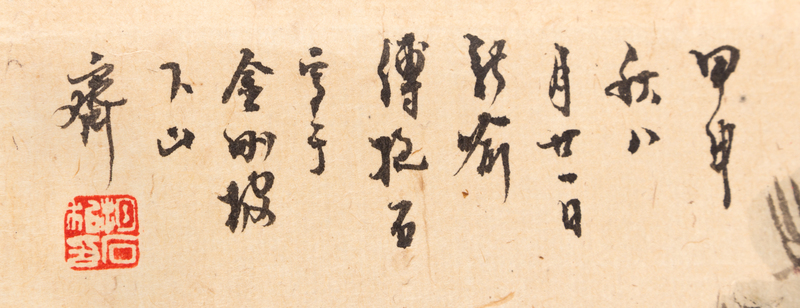 甲申
秋八
月廿一日
新喻
傅抱石
写于
金刚坡
下山
齋
抱石